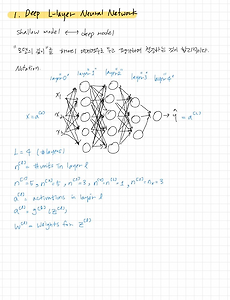 1. Deep L-layer Neural Network
shallow model ↔ deep model
Notation
layer 0 layer 1 layer 2 layer 3 layer 4
x1
x2
x3
x = a^[0]
ŷ = a^[L]
L = 4 (#layers)
n^[l] = #units in layer l
n^[1]=5, n^[2]=5, n^[3]=3, n^[4]=n^[L]=1, n^[0]=n_x=3
a^[l] = activations in layer l
a^[l] = g^[l](z^[l])
w^[l] = weights for z^[l]